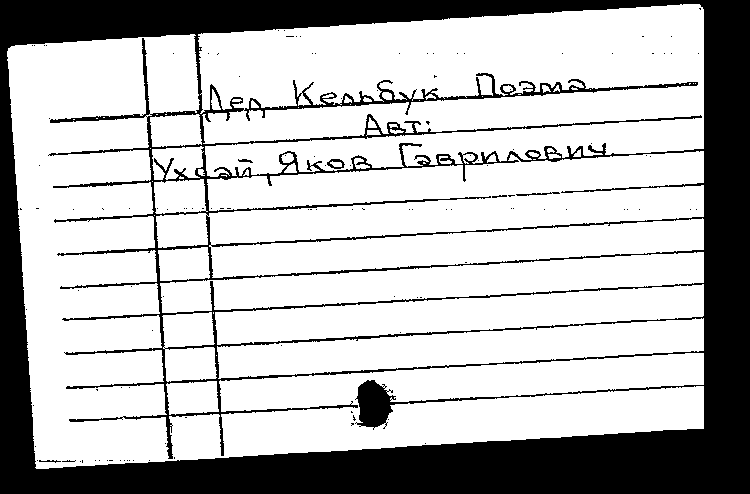 Дед Кельбук Поэма
Авт:
Ухсай, Яков Гаврилович